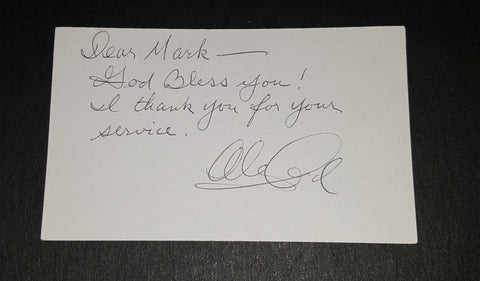 Dear Mark —
God Bless you!
I thank you for your
service.